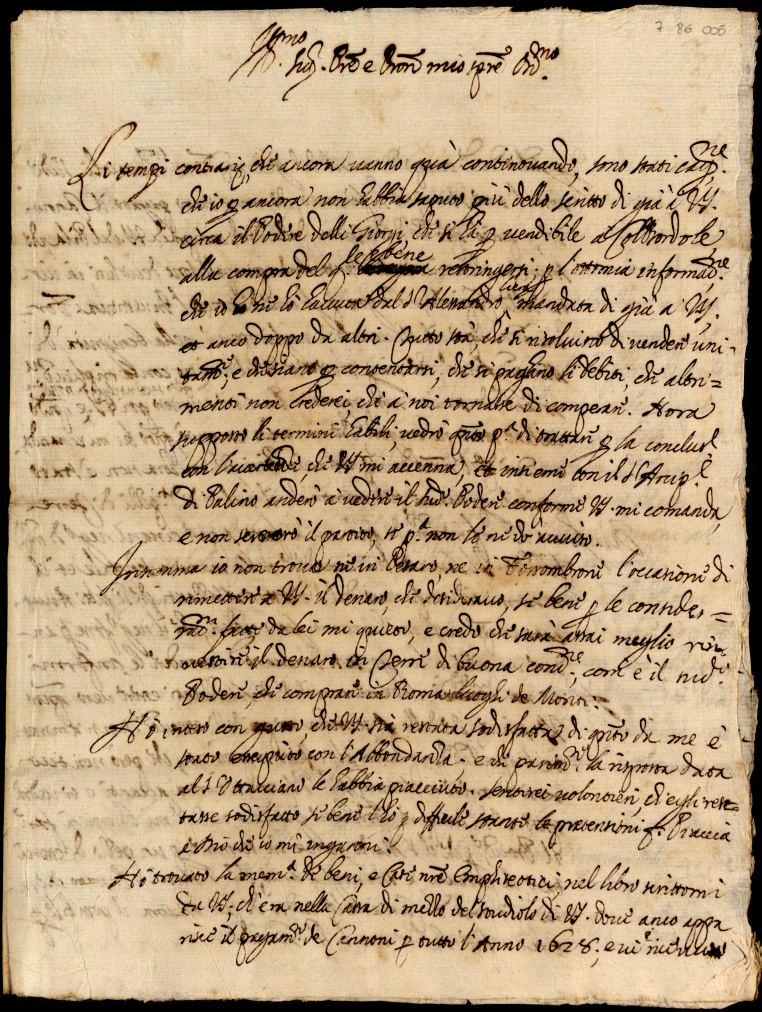 7 86 006
Ill.mo
Sig.r P.re e Pron mio sp.re Oss.mo
Li tempi contrarij, che ancora vanno quà continovando, sono stati cag.ne
che io p ancora non habbia saputo più dello scritto di già à VS.
circa il Podere delli Giorgi, che si hà p vendibile a Colbordole
alla compra del q.le sebene restringersi; p l'ottima informat.ne
che io ne hò havuta dal S.r Alessandro mandata di già a VS.
et anco doppo da altri. tutto stà, che si risolvino di vendere uni-
tam.te, e che siano p contentarsi, che si paghino li debiti, che altri=
menti non crederei, che a noi tornasse di comperare. Hora
supposto li termini habili, vedrò q.to p.a di trattare p la conclus.e
con l'avertenze, che VS mi accenna, et insieme con il S.r Arcip.e
di Palino anderò à vedere il sud.o Podere conforme VS. mi comanda,
e non serrerò il partito, se p.a non le ne do avviso.
Insomma io non trovo ne in Pesaro, ne in Fossombrone l'occasione di
rimettere a VS. il denaro, che desideravo, se bene p le conside=
rat.ni fatte da lei mi quieto, e credo che sarà assai meglio rin
vestire il denaro in Terre di buona cond.ne, com'è il sud.o
Podere, che comprare in Roma luoghi de Monti.
Hò inteso con gusto, che VS. sia restata sodisfatta di q.to da me è
stato esequito con l'Abbondanza. e che parim.te la risposta data
al S.r Ottaviano le habbia piacciuto. sentirei volontieri, ch'egli res=
tasse sodisfatto se bene l'hò p difficile stante le pretensioni f. Piaccia
à Dio che io mi inganni.
Hò trovato la mem.a de beni, e Case nre Emphiteotici nel libro scrittomi
da VS, ch'era nella Cassa di mezzo del studiolo di VS. dove anco appa
risce il pagam.to de Cannoni p tutto l'Anno 1628; e vi è